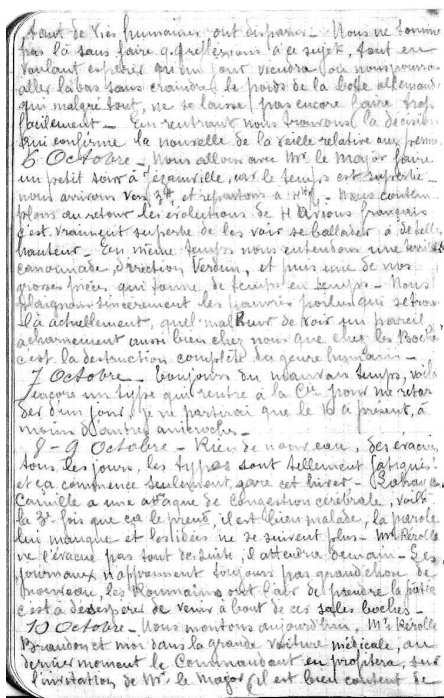 tant de vies humaines ont disparus. Nous ne sommes
pas là sans faire q.q. reflexions à ce sujet, tout en
voulant espérer qu'un jour viendra où nous pourrons
aller là bas sans craindre le poids de la botte allemande
qui malgré tout, ne se laisse pas encore faire trop
facilement - En rentrant nous trouvons la décision
qui confirme la nouvelle de la veille relative aux perms
6 Octobre - Nous allons avec Mr le Major faire
un petit tour à Jézainville, car le temps est superbe -
nous arrivons vers 3h et repartons à 4h - Nous contem-
plons au retour les évolutions de 4 avions français
c'est vraiment superbe de les voir se ballader à de telles
hauteur - En même temps nous entendons une terrible
canonnade, direction Verdun, et puis une de nos
grosses pièces qui tonne de temps en temps - Nous
plaignons sincèrement les pauvres poilus qui se trouv
là actuellement, quel malheur de voir un pareil
acharnement aussi bien chez nous que chez les Boches
c'est la destruction complète du genre humain -
7 Octobre - Toujours du mauvais temps, voilà
encore un type qui rentre à la Cie pour me retar
der d'un jour, je ne partirai que le 10 à présent, à
moins d'autres anicroches -
8-9 Octobre - Rien de nouveau, des évacués
tous les jours, les types sont tellement fatigués
et ça commence seulement, gare cet hiver -
Camille a une attaque de congestion cérébrale, voilà
la 3e fois que ça le prend, il est bien malade, la parole
lui manque et les idées ne se suivent plus - Mr Rérolle
ne l'évacue pas tout de suite, il attendra demain - Les
journaux n'apprennent toujours pas grand'chose de
nouveau, les Roumains ont l'air de prendre la
c'est à désespérer de venir à bout de ces sales boches -
10 Octobre - Nous montons aujourd'hui, Mr Rérolle
Beaudon et moi dans la grande voiture médicale, au
dernier moment le Commandant en profitera, sur
l'invitation de Mr le Major, il est bien content de